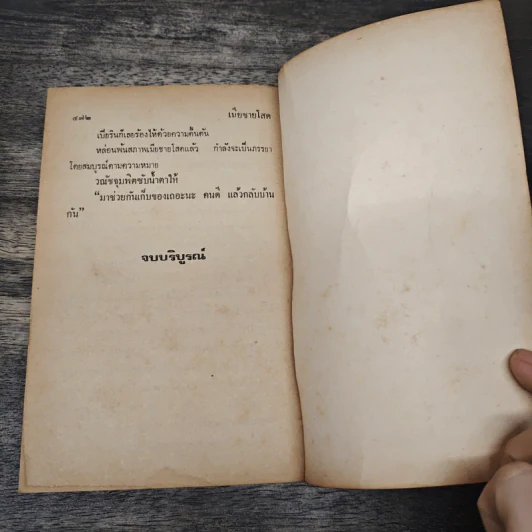 ๔๗๒ เมียชายโสด
เบี่ยรินก็เลยร้องไห้ด้วยความตื้นตัน
หล่อนพ้นสภาพเมียชายโสดแล้ว กำลังจะเป็นภรรยา
โดยสมบูรณ์ตามความหมาย
วณัชจุมพิตซับน้ำตาให้
“มาช่วยกันเก็บของเถอะนะ คนดี แล้วกลับบ้าน
กัน”
จบบริบูรณ์